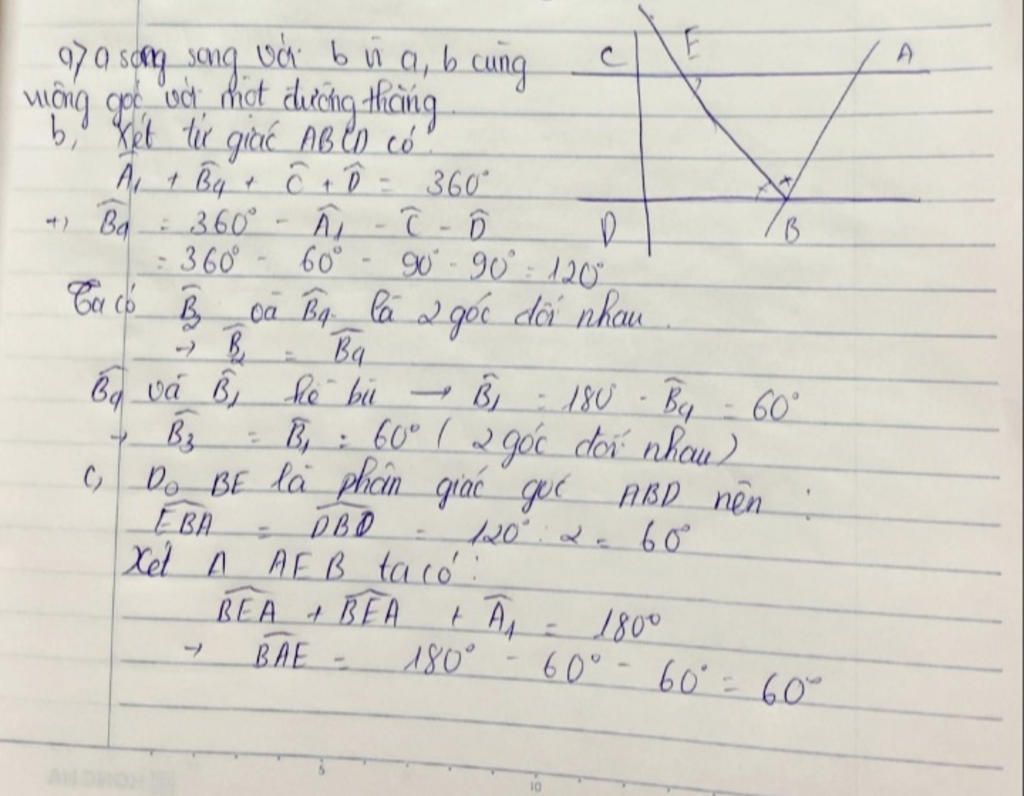 a> a song song với b vì a, b cùng
vuông góc với một đường thẳng.
b, Xét tứ giác ABCD có
Â₁ + B̂₄ + Ĉ + D̂ = 360°
→ B̂₄ = 360° - Â₁ - Ĉ - D̂
= 360° - 60° - 90° - 90° = 120°
Ta có B̂₂ và B̂₄ là 2 góc đối nhau.
→ B̂₂ = B̂₄
B̂₄ và B̂₁ kề bù → B̂₁ = 180 - B̂₄ = 60°
→ B̂₃ = B̂₁ = 60° ( 2 góc đối nhau)
c, Do BE là phân giác góc ABD nên :
EBA = DBD = 120° : 2 = 60°
Xét A AEB ta có :
BEA + BEA + Â₁ = 180°
→ BAE = 180° - 60° - 60° = 60°
C E A
D B
5 10